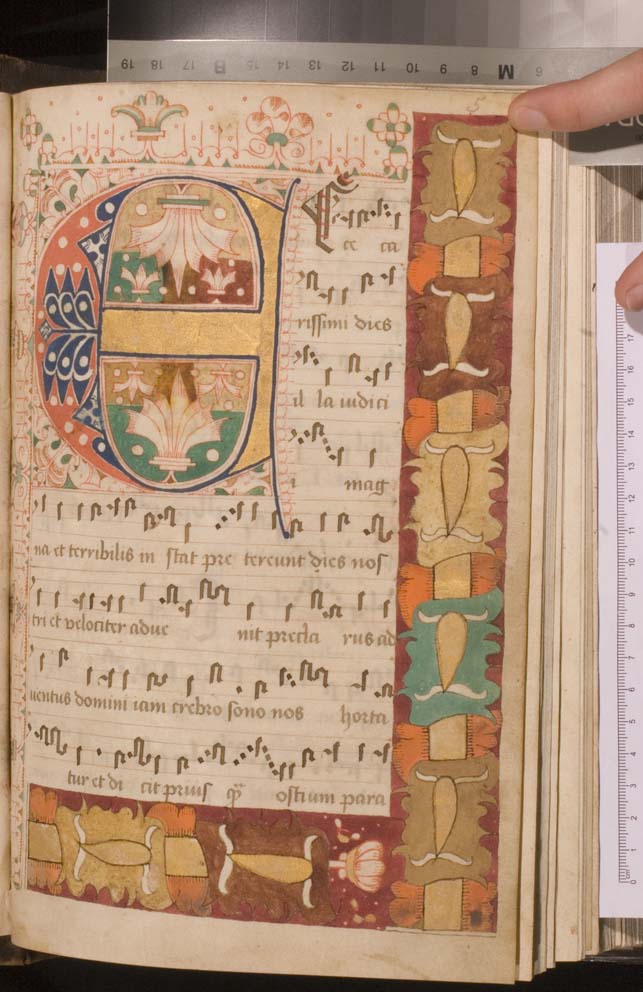 5
E
te ca
rissimi dies
il la iudici
i mag
na et terribilis in stat pre tereunt dies nos
tri et velociter adue nit precla rus ad
uentus domini iam crebro sono nos horta
tur et di cit prius qꝫ ostium para
19 18 17 B 15 14 13 12 11 10 9 8 M 6
17 15 14 13 12 11 10 9 8 7 6 5 4 3 2 1 0
cm